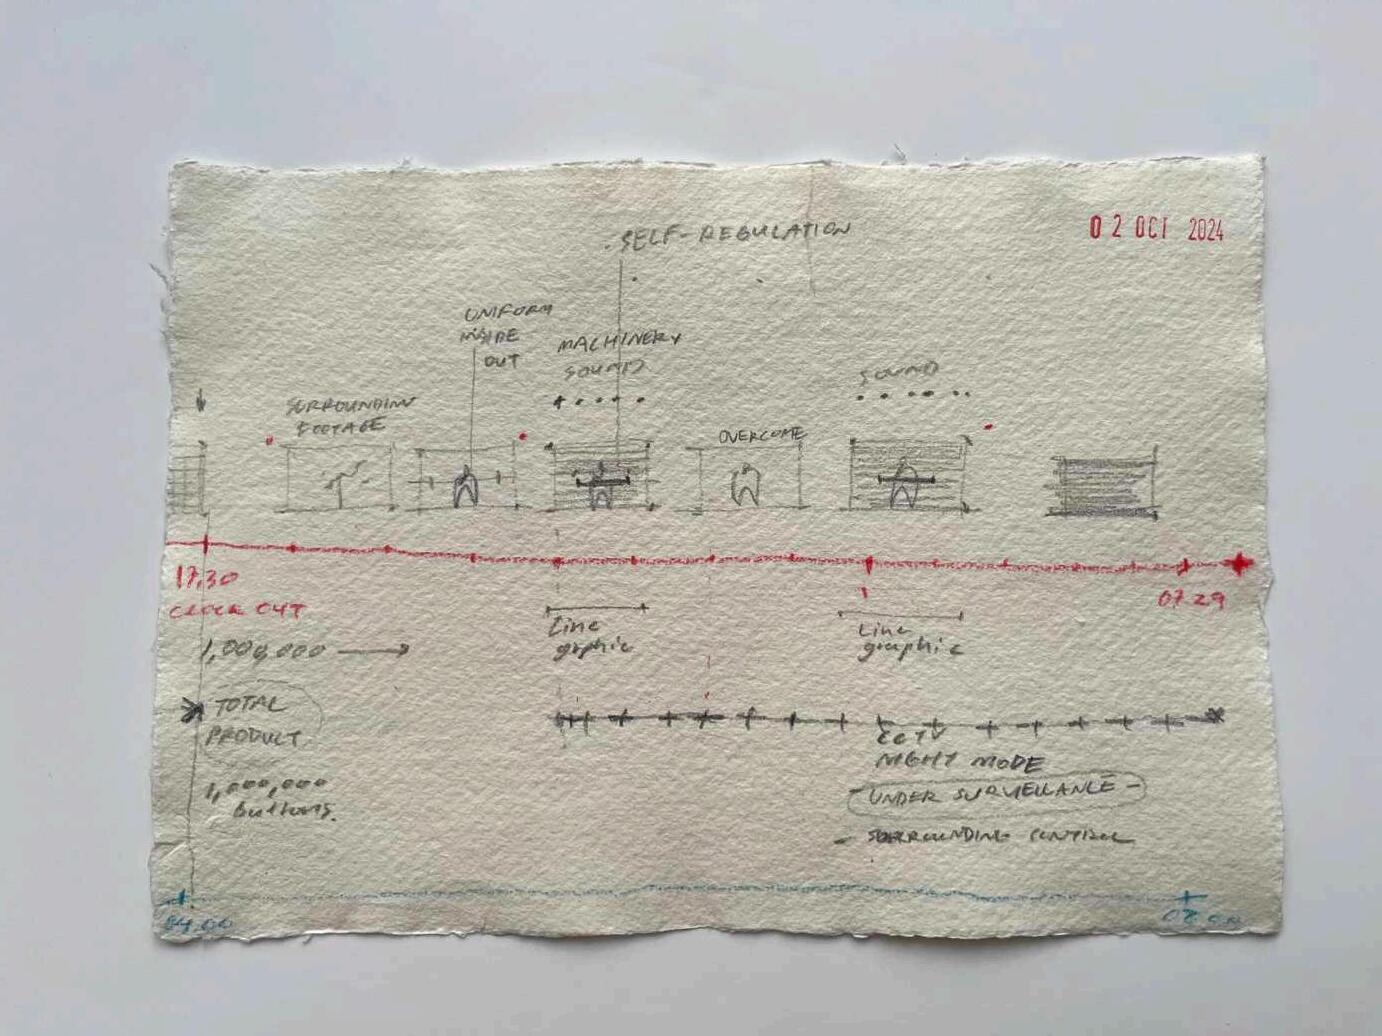 SELF-REGULATION
02 OCT 2024
UNIFORM
INSIDE
OUT
MACHINERY
SOUND
SOUND
SURROUNDING
FOOTAGE
OVERCOME
17.30
CLOCK OUT
07.29
1,000,000
Line
grphic
Line
graphic
TOTAL
PRODUCT
1,000,000
buttons.
CCTV
NIGHT MODE
- UNDER SURVEILLANCE -
- SURROUNDING CONTROL
04.00